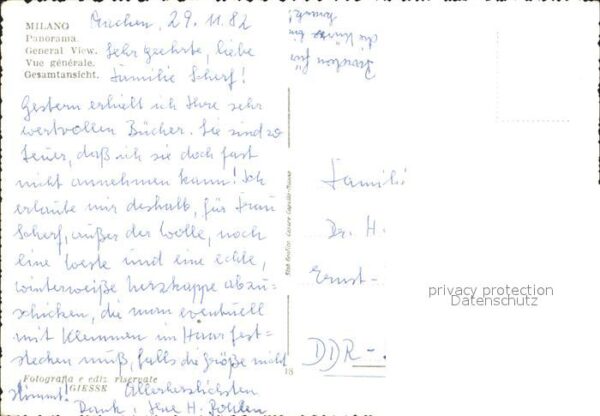 MILANO
Panorama
General View.
Vue générale.
Gesamtansicht.
Aachen, 29.11.82
Sehr geehrte, liebe
Familie Scherf!
Gestern erhielt ich Ihre sehr
wertvollen Bücher. Sie sind so
teuer, daß ich sie doch fast
nicht annehmen kann! Ich
erlaube mir deshalb, für Frau
Scherf, außer der Wolle, noch
eine Weste und eine echte,
winterweiße Nerzkappe abzu-
schicken, die man eventuell
mit Klemmen im Haar fest-
stecken muß, falls die Größe nicht
stimmt! Allerherzlichsten
Dank! Ihre H.
Fotografia e ediz. riservate
GIESSE
18
für
die Kürze
Familie
Dr. H.
Ernst-
DDR-
privacy protection
Datenschutz